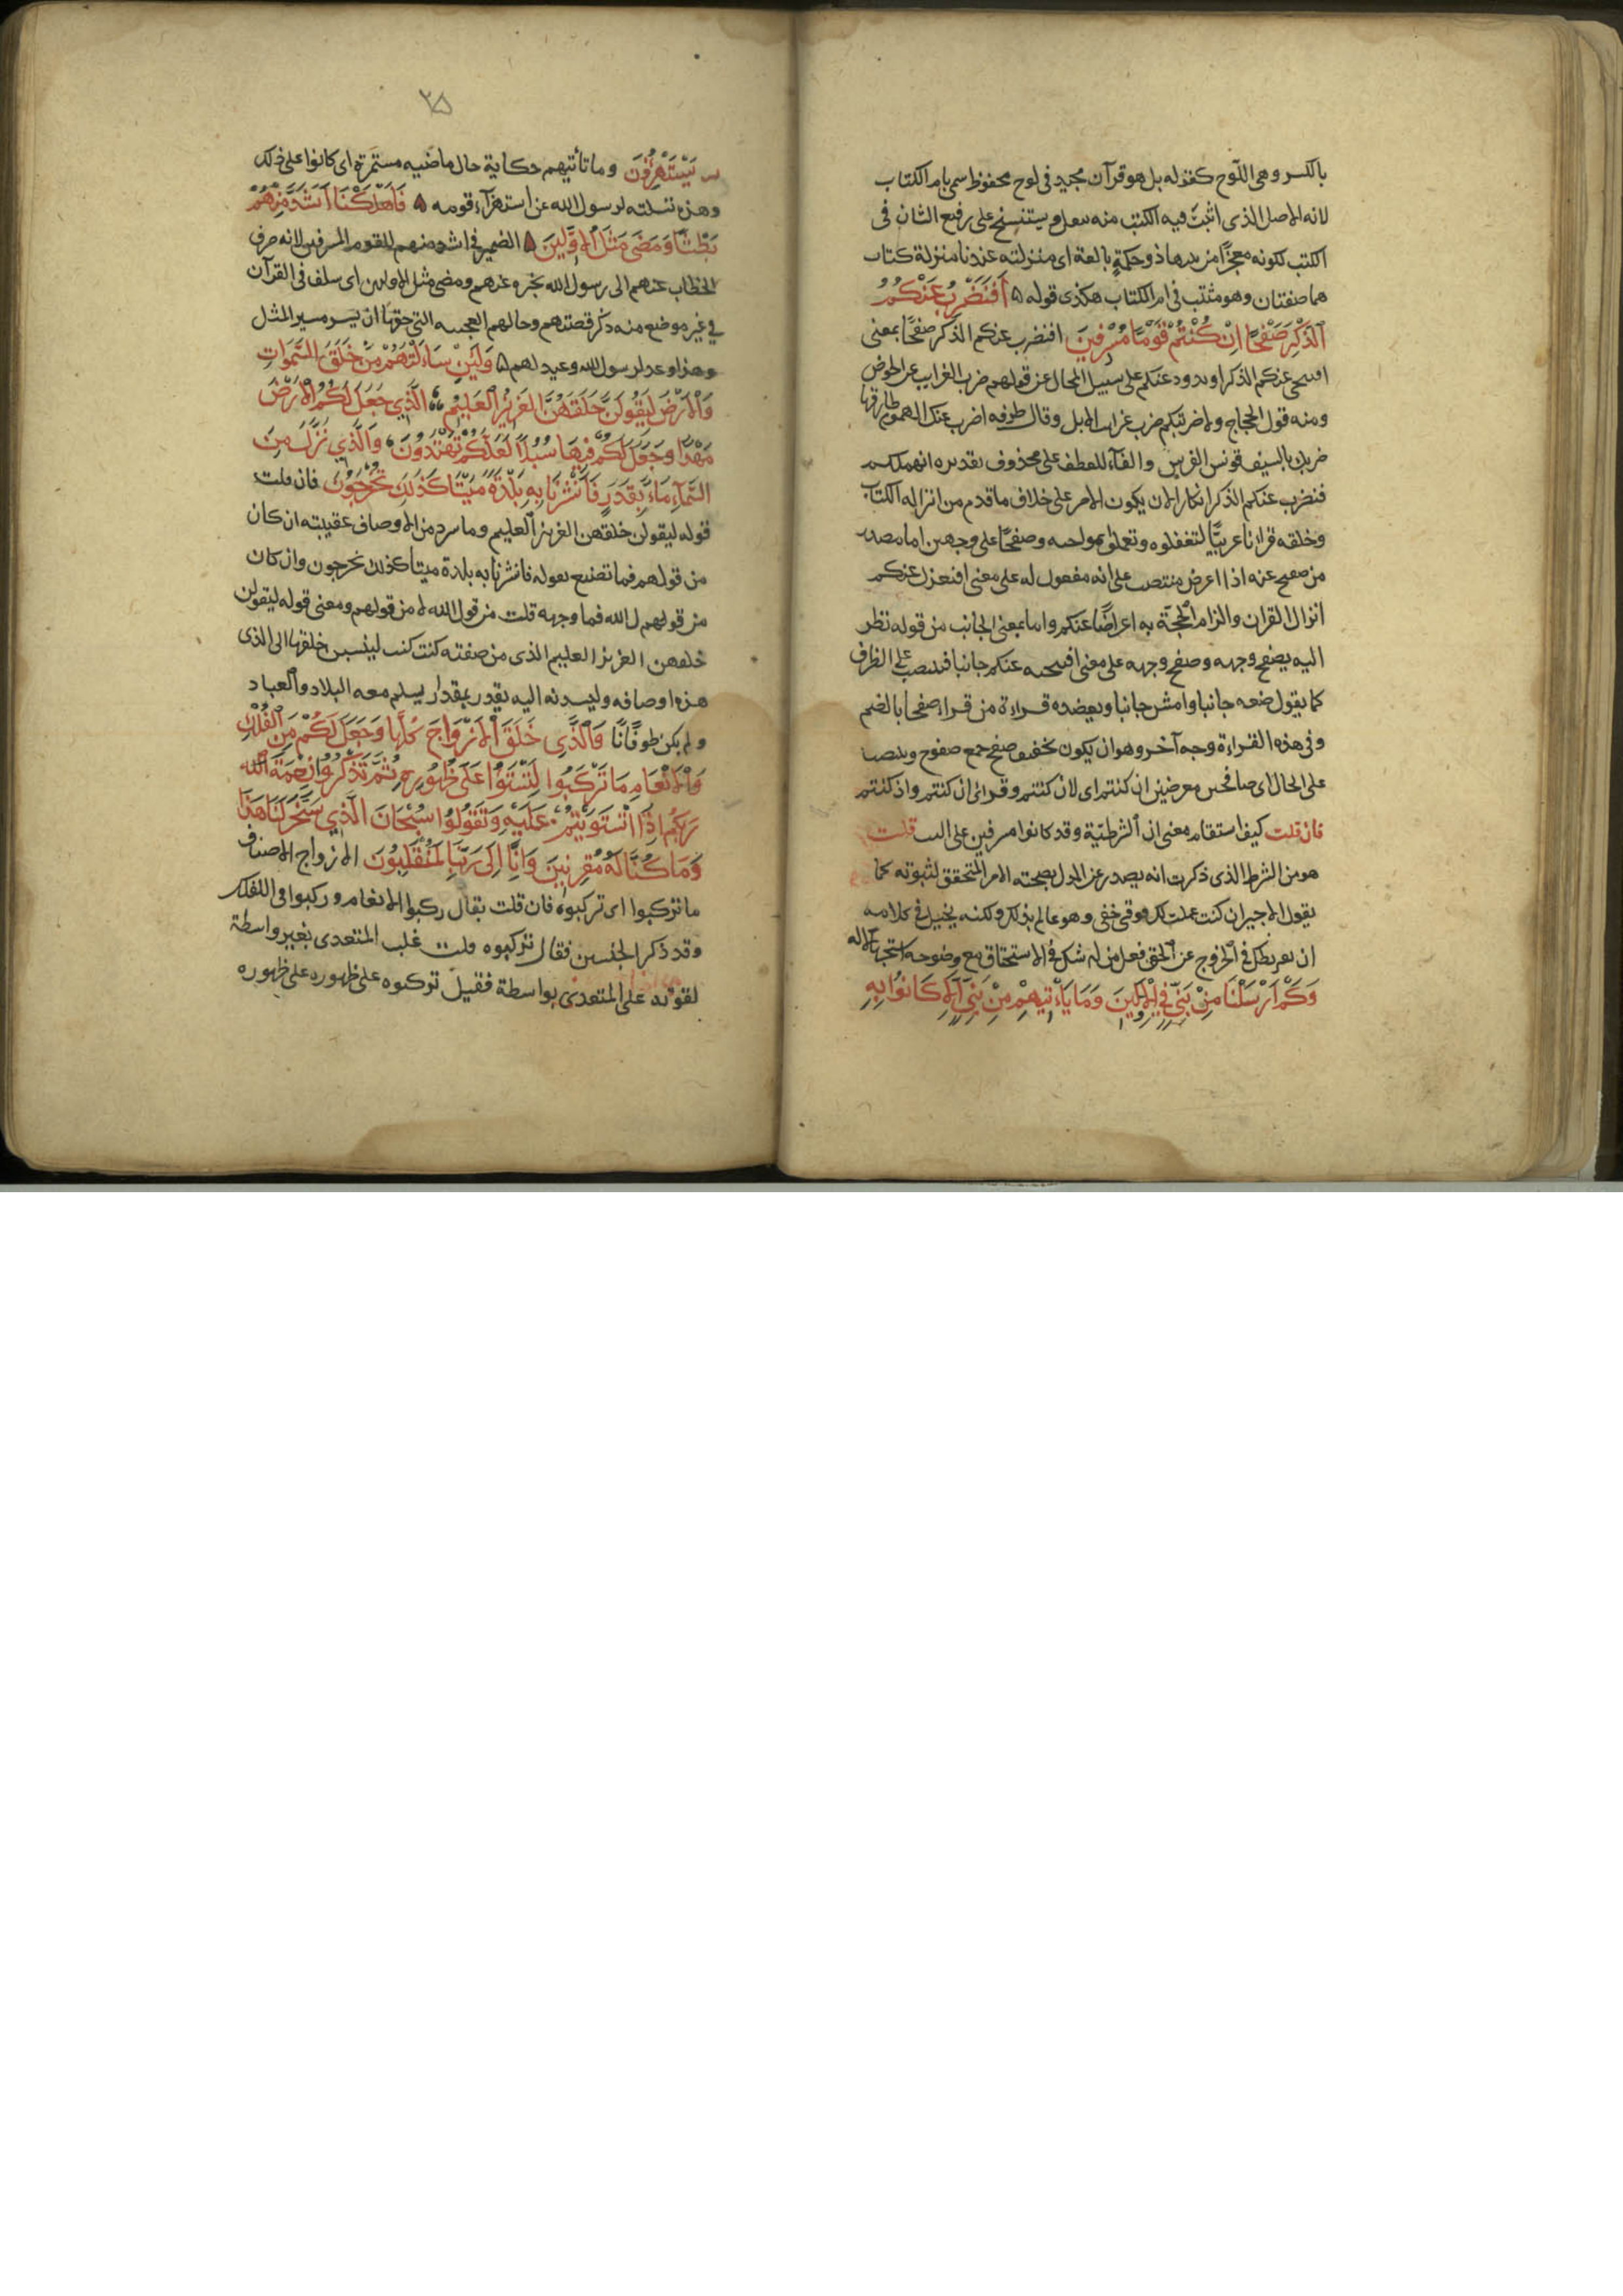 بالكسر وهى اللّوح كقوله بل هو قرآن مجيد فى لوح محفوظ سمى بام الكتاب
لانه الاصل الذى اثبتَ فيه الكتب منه ينقل ويستنسخ على رفيع الشان فى
الكتب لكونه معجزًا من بينها ذو حكمةٍ بالغة اى منزلته عندنا منزلة كتاب
هما صفتان وهو مثبت فى ام الكتاب هكذى قوله ۵ أَفَنَضْرِبُ عَنْكُمُ
الذِّكْرَ صَفْحًا اِنْ كُنْتُمْ قَوْمًا مُسْرِفِينَ افنضرب عنكم الذكر صفحًا بمعنى
افننحى عنكم الذكر اونذوده عنكم على سبيل المجاز عن قولهم ضرب الغرايب عن الحوض
ومنه قول الحجاج ولاضربنكم ضرب غرايب الابل وقال طرفه اضرب عنك الهموم طارقها
ضربك بالسيف قونس الفرس والفآء للعطف على محذوف تقديره انهملكم
فنضرب عنكم الذكر انكارا لان يكون الامر على خلاف ما قدم من انزاله الكتاب
وخلقه قرانا عربيًّا لتعقلوه وتعملوا بمواجبه وصفحًا على وجهين اما مصدر
من صفح عنه اذا اعرض منتصب على انه مفعول له على معنى افنعزل عنكم
انزال القران والزام الحجّة به اعراضًا عنكم واما بمعنى الجانب من قوله نظر
اليه بصفح وجهه وصفح وجهه على معنى افننحيه عنكم جانبا فينتصب على الظرف
كما يقول ضعه جانبا وامش جانبا ويعضده قراءة من قراء صفحا بالضم
وفى هذه القراءة وجه آخر وهو ان يكون تخفيف صفح جمع صفوح وينتصب
على الحال اى صافحين معرضين ان كنتم اى لان كنتم وقرائ ان كنتم واذ كنتم
فان قلت كيف استقام معنى ان الشرطيّة وقد كانوا مسرفين على البت قلت
هو من الشرط الذى ذكرت انه يصدر عن المدل بصحته الامر المتحقق لثبوته كما
يقول الاجير ان كنت عملت لك فوقى حقى وهو عالم بذلك ولكنه يخيل فى كلامه
ان تفريطك فى الخروج عن الحق فعل من له شك فى الاستحقاق مع وضوحه استجهالا له
وَكَمْ اَرْسَلْنَا مِنْ نَبِىٍّ فِي الْاَوَّلِينَ وَمَا يَاْتِيهِمْ مِنْ نَبِىٍّ اِلَّا كَانُوا بِهِ
يَسْتَهْزِؤُنَ وما تأتيهم حكاية حال ماضيه مستمرّة اى كانوا على ذلك
وهذه تسلته لرسول الله عن استهزآء قومه ۵ فَاَهْلَكْنَا اَشَدَّ مِنْهُمْ
بَطْشًا وَمَضَى مَثَلُ الْاَوَّلِينَ ۵ الضمير فى اشد منهم للقوم المسرفين لانه صرف
الخطاب عنهم الى رسول الله يخبره عنهم ومضى مثل الاولين اى سلف فى القرآن
فى غير موضع منه ذكر قصتهم وحالهم العجيبه التى حقها ان يسير مسير المثل
وهذا وعد لرسول الله وعيد لهم ۵ وَلَئِنْ سَاَلْتَهُمْ مَنْ خَلَقَ السَّمَوَاتِ
وَالْاَرْضَ لَيَقُولُنَّ خَلَقَهُنَّ الْعَزِيزُ الْعَلِيمُ الَّذِي جَعَلَ لَكُمُ الْاَرْضَ
مَهْدًا وَجَعَلَ لَكُمْ فِيهَا سُبُلًا لَعَلَّكُمْ تَهْتَدُونَ وَالَّذِي نَزَّلَ مِنَ
السَّمَآءِ مَاءً بِقَدَرٍ فَاَنْشَرْنَا بِهِ بَلْدَةً مَيْتًا كَذَلِكَ تُخْرَجُونَ فان قلت
قوله ليقولن خلقهن العزيز العليم وما سرد من الاوصاف عقيبته ان كان
من قولهم فما تصنع بقوله فانشرنا به بلدة ميتا كذلك تخرجون وان كان
من قول الله فما وجهه قلت من قول الله لا من قولهم ومعنى قوله ليقولن
خلقهن العزيز العليم الذى من صفته كنت كنت لينسبن خلقها الى الذى
هذه اوصافه وليسندنه اليه بقدر بمقدار يسلم معه البلاد والعباد
ولم يكن طوفانًا وَالَّذِى خَلَقَ الْاَزْوَاجَ كُلَّهَا وَجَعَلَ لَكُمْ مِنَ الْفُلْكِ
وَالْاَنْعَامِ مَا تَرْكَبُوا لِتَسْتَوُا عَلَى ظُهُورِهِ ثُمَّ تَذْكُرُوا نِعْمَةَ اللّٰه
رَبِّكُمْ اِذَا اسْتَوَيْتُمْ عَلَيْهِ وَتَقُولُوا سُبْحَانَ الَّذِي سَخَّرَ لَنَا هَذَا
وَمَا كُنَّا لَهُ مُقْرِنِينَ وَاِنَّا اِلَى رَبِّنَا لَمُنْقَلِبُونَ الازواج الاصناف
ما تركبوا اى تركبوه فان قلت يقال ركبوا الانعام وركبوا فى الفلك
وقد ذكر الجنسين فقال تركبوه قلت غلب المتعدى بغير واسطة
لقوته على المتعدى بواسطة فقيل تركبوه على ظهوره على ظهوره